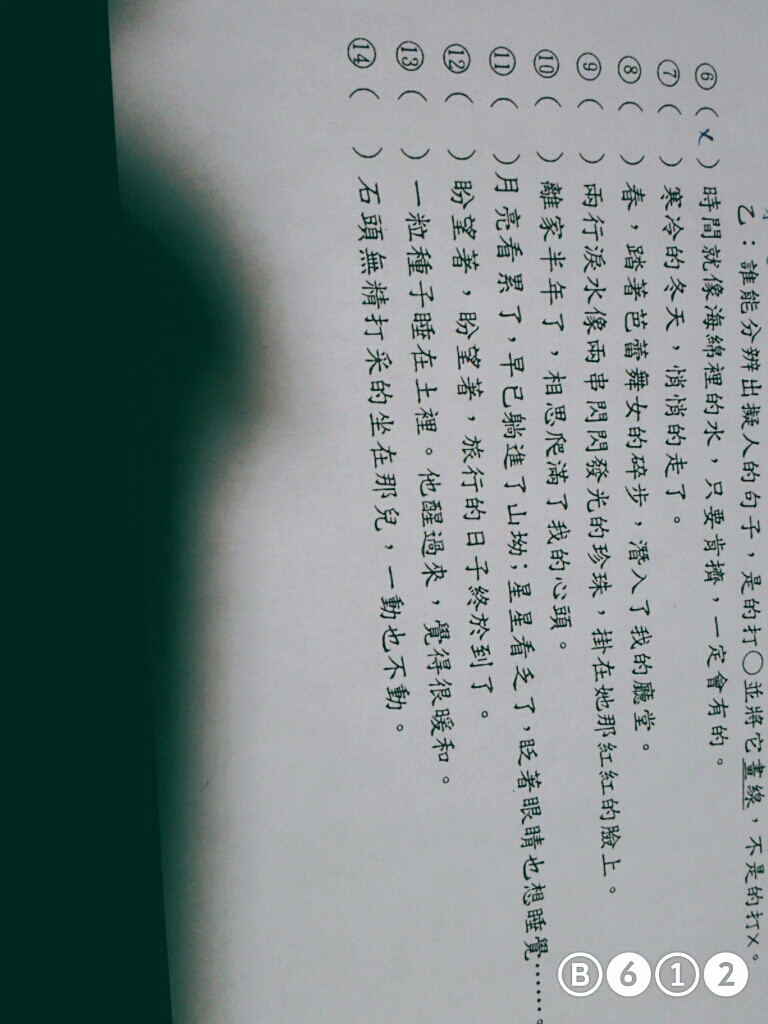 乙：誰能分辨出擬人的句子，是的打○並將它畫線，不是的打×。
⑥（×）時間就像海綿裡的水，只要肯擠，一定會有的。
⑦（　）寒冷的冬天，悄悄的走了。
⑧（　）春，踏著芭蕾舞女的碎步，潛入了我的廳堂。
⑨（　）兩行淚水像兩串閃閃發光的珍珠，掛在她那紅紅的臉上。
⑩（　）離家半年了，相思爬滿了我的心頭。
⑪（　）月亮看累了，早已躺進了山坳；星星看乏了，眨著眼睛也想睡覺……。
⑫（　）盼望著，盼望著，旅行的日子終於到了。
⑬（　）一粒種子睡在土裡。他醒過來，覺得很暖和。
⑭（　）石頭無精打采的坐在那兒，一動也不動。
B612